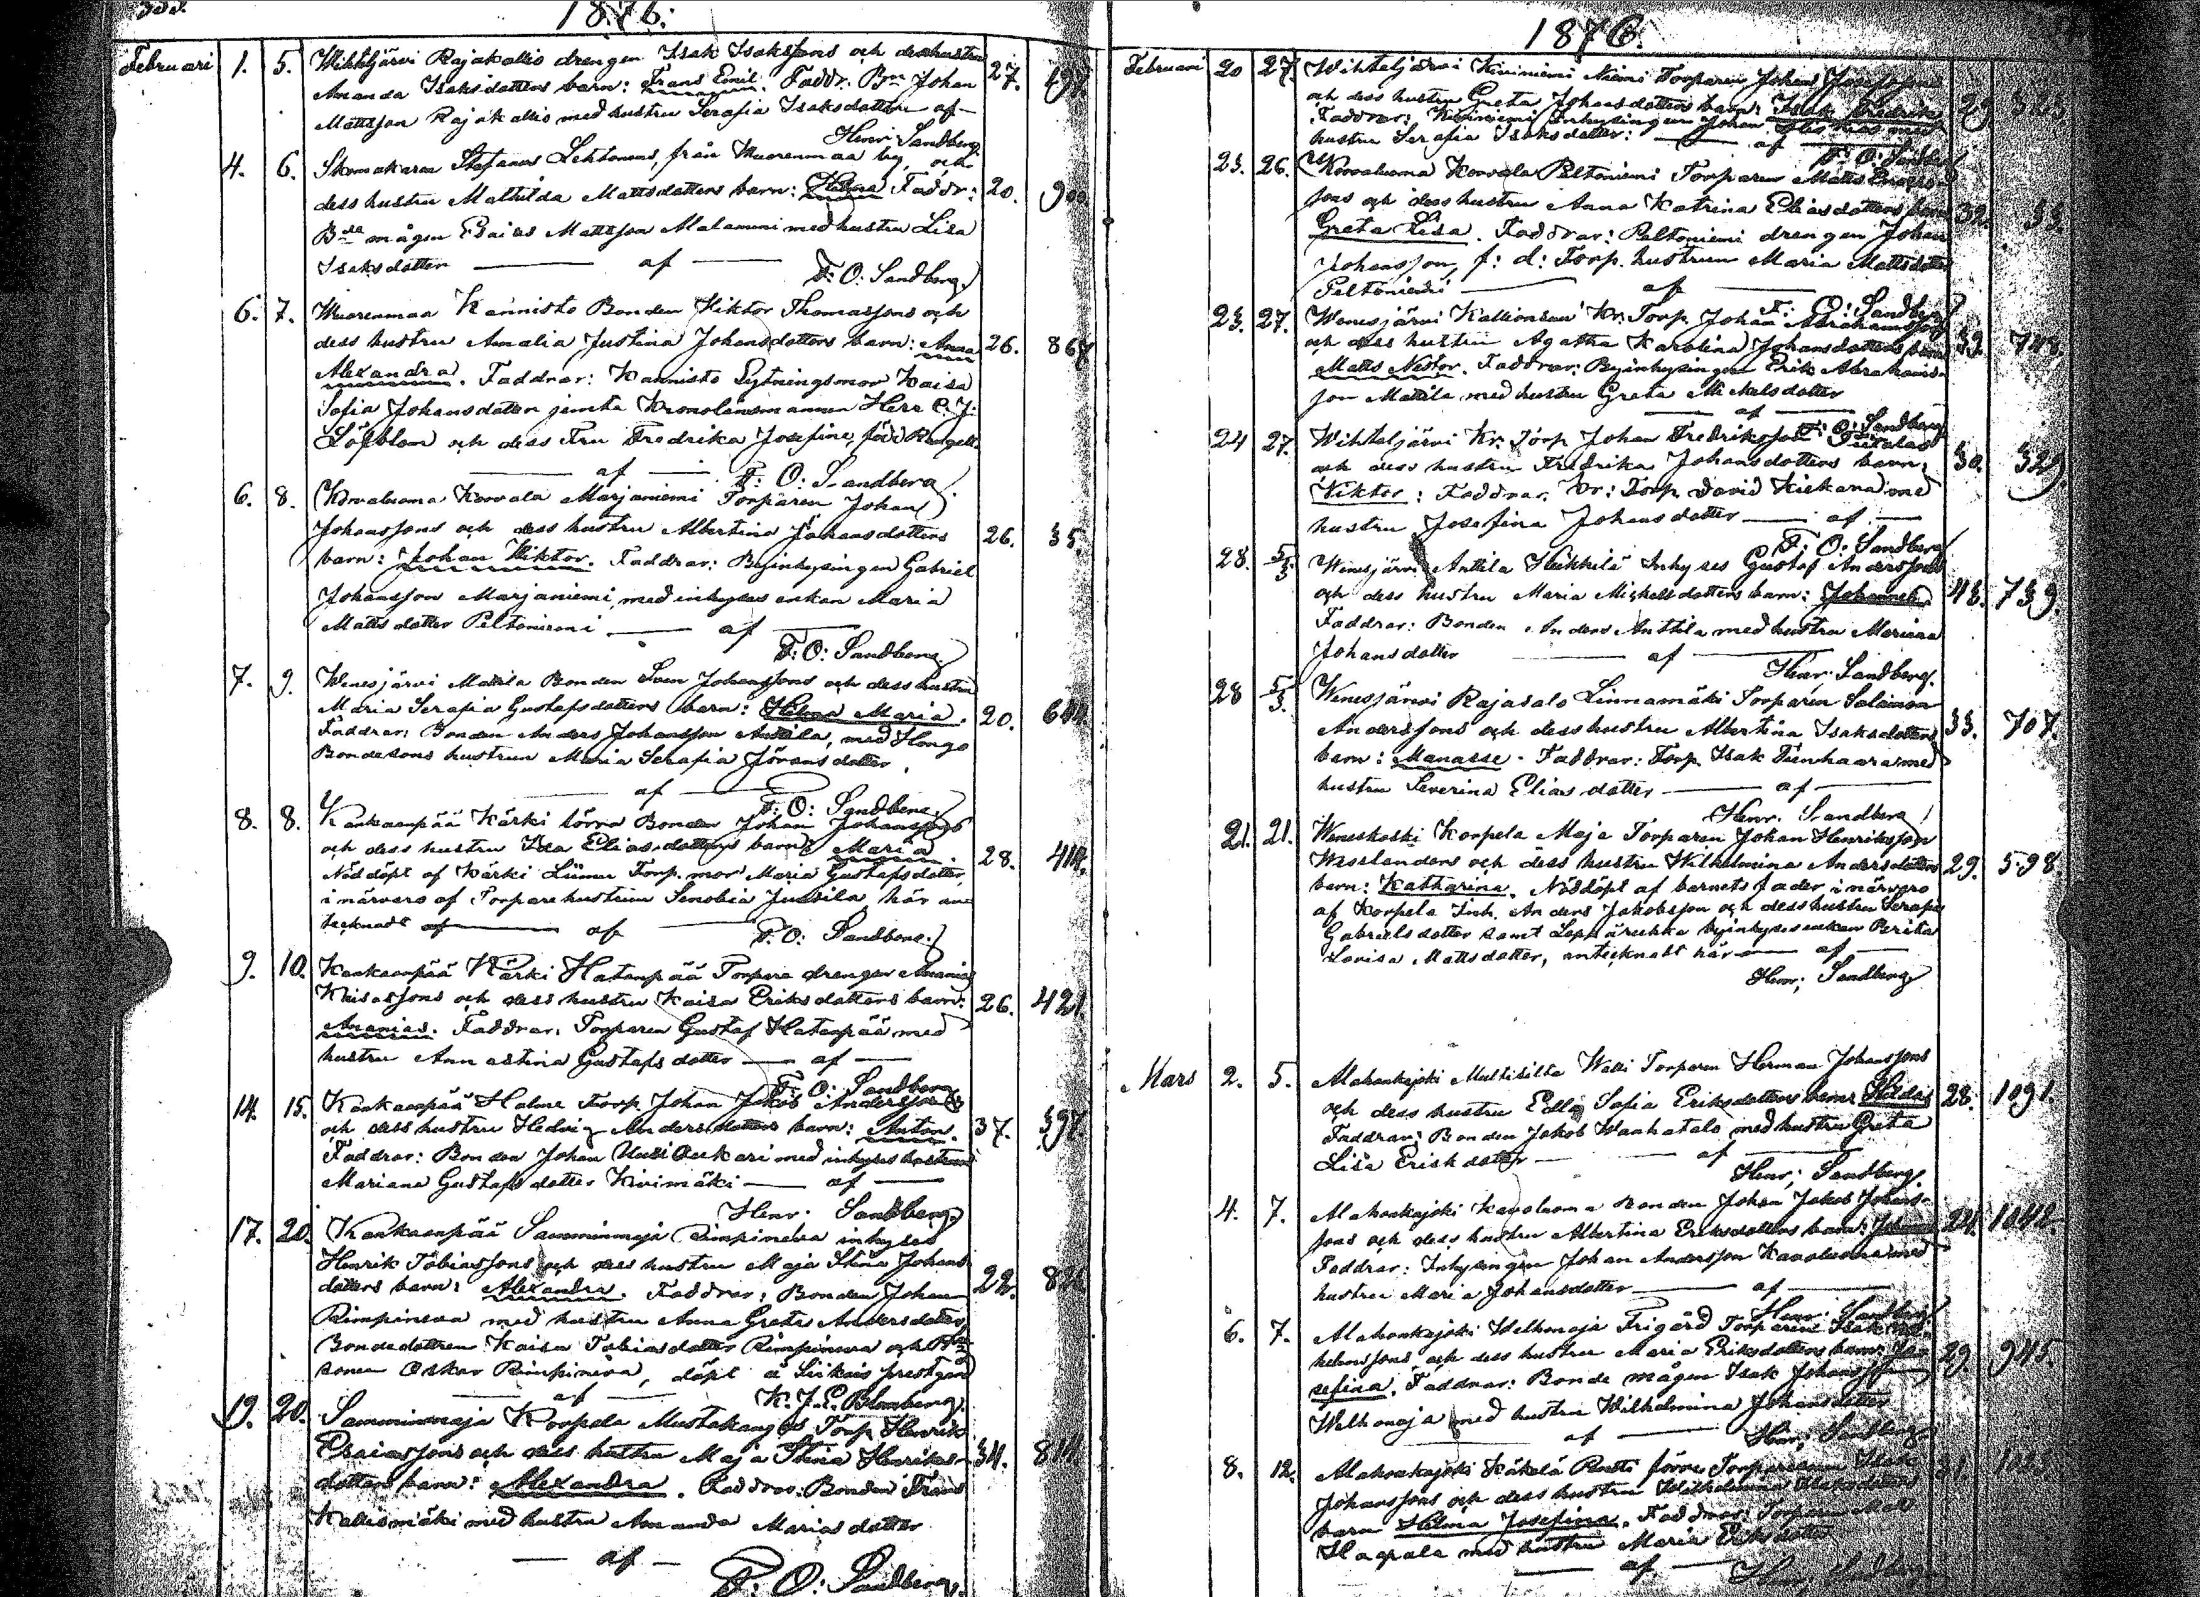 1876.
Februari 1. 5. Wihteljärvi Rajakallio drengen Isak Isakssons och dess hustru
Amanda Isaksdotters barn: Frans Emil. Faddr: Bn Johan 27.
Mattsson Rajakallio med hustru Serafia Isaksdotter af
Henr. Sandberg
4. 6. Skomakaren Stefanus Lehtonens, från Wuorenmaa by, och
dess hustru Mathilda Mattsdotters barn: Faddr: 20. 900
mågen Esaias Mattsson Malanuni med hustru Lisa
Isaksdotter af
F: O: Sandberg.
6. 7. Wuorenmaa Kannisto Bonden Viktor Thomassons och
dess hustru Amalia Justina Johansdotters barn: Anna 26. 867
Alexandra. Faddrar: Kannisto Sytningsmor Kaisa
Sofia Johansdotter jemte Kronolänsmannen Herr C. J.
Löfblom och dess Fru Fredrika Josefine, född
af F: O: Sandberg.
6. 8. Korvaluoma Korvala Marjaniemi Torparen Johan
Johanssons och dess hustru Albertina Johansdotters 26. 35.
barn: Johan Viktor. Faddrar: Byinhysingen Gabriel
Johansson Marjaniemi, med inhyses enkan Maria
Mattsdotter Peltoniemi af
F: O: Sandberg
7. 9. Wenesjärvi Mattila Bonden Sven Johanssons och dess hustru
Maria Serafia Gustafsdotters barn: Maria. 20.
Faddrar: Bonden Anders Johansson Anttila, med Hongo
Bondesons hustrun Maria Serafia Jöransdotter
af
F: O: Sandberg.
8. 8. Kankaanpää Kärki Bonden Johan Johanssons
och dess hustru Ida Eliasdotters barn: Maria. 28. 414.
Nöddöpt af Kärki Torp. mor Maria Gustafsdotter,
i närvaro af Torpare hustrun Senobia Jussila, här an
tecknadt af af
F. O: Sandberg.
9. 10. Kankaanpää Kärki Hatanpää Torpare drengen Ananias
och dess hustru Kaisa Eriksdotters barn: 26. 421.
Ananias. Faddrar: Torparen Gustaf Hatanpää med
hustru Anna Stina Gustafsdotter af
F: O: Sandberg
14. 15. Kankaanpää Holme Torp. Johan Jakob Anderssons
och dess hustru Hedvig Andersdotters barn: Anton. 37. 397.
Faddrar: Bonden Johan Uusi Aukari med inhyses hustrun
Mariana Gustafsdotter Kivimäki af
Henr. Sandberg
17. 20. Kankaanpää Samminmaja Rimpineva inhyses
Henrik Tobiassons och dess hustru Maja Stina Johans
dotters barn: Alexandra. Faddrar: Bonden Johan 22.
Rimpineva med hustru Anna Greta Andersdotter,
Bondedottren Kaisa Tobiasdotter Rimpineva och
sonen Oskar Rimpineva, döpt å Siikais prestgård
af K. J. E. Blomberg.
19. 20. Samminmaja Korpela Mustakangas Torp. Henrik
Esaiassons och dess hustru Maja Stina Henriks- 34. 814.
dotters barn: Alexandra. Faddrar: Bonden Frans
Kalliomäki med hustru Amanda Mariasdotter
af
F: O: Sandberg.
1876.
Februari 20 27. Wihteljärvi Kiviniemi Niemi Torparen Johan
och dess hustru Greta Johansdotters barn: Isak Fredrik 29
Faddrar: Kiviniemi Inhysingen Johan med
hustru Serafia Isaksdotter: af
F: O: Sandberg
23. 26. Korvaluoma Korvala Peltoniemi Torparen Matts
sons och dess hustru Anna Katrina Eliasdotters barn 32. 33.
Greta Lisa. Faddrar: Peltoniemi drengen Johan
Johansson, f: d: Torp. hustrun Maria Mattsdotter
Peltoniemi af
F: O: Sandberg
23. 27. Wenesjärvi Kallionsuu Kr. Torp. Johan Abrahamssons
och dess hustru Agatha Karolina Johansdotters barn 39. 748.
Matts Nestor. Faddrar: Byinhysingen Erik Abrahams-
son Mattila med hustru Greta Mickelsdotter
af
F: O: Sandberg
24 27. Wihteljärvi Kr: Torp Johan Fredriksson
och dess hustru Fredrika Johansdotters barn: 30. 329.
Viktor: Faddrar. Kr: Torp David Kiekara med
hustru Josefina Johansdotter af
F: O: Sandberg
28. 5/3 Wenesjärvi Anttila Heikkilä Inhyses Gustaf Anderssons
och dess hustru Maria Mickelsdotters barn: Johannes. 43. 739.
Faddrar: Bonden Anders Anttila med hustru Mariana
Johansdotter af
Henr. Sandberg.
28 5/3. Wenesjärvi Rajasalo Linnamäki Torparen Salomon
Anderssons och dess hustru Albertina Isaksdotters 33. 707.
barn: Manasse. Faddrar: Torp. Isak Tienhaara med
hustru Severina Eliasdotter af
Henr. Sandberg
21. 21. Weneskoski Korpela Maja Torparen Johan Henriksson
Wesslanders och dess hustru Wilhelmina Andersdotters 29. 598.
barn: Katharina. Nöddöpt af barnets fader i närvaro
af Korpela Inh. Anders Jakobsson och dess hustru Serafia
Gabrielsdotter samt Leppäruhka byinhyses enkan Perika
Lovisa Mattsdotter, antecknadt här af
Henr. Sandberg
Mars 2. 5. Alahonkajoki Multisilta Walli Torparen Herman Johanssons
och dess hustru Edla Sofia Eriksdotters barn: Hilda 28. 1091.
Faddrar: Bonden Jakob Wanhatalo med hustru Greta
Lisa Eriksdotter af
Henr. Sandberg.
4. 7. Alahonkajoki Bonden Johan Jakob Johans-
sons och dess hustru Albertina Eriksdotters barn: 24. 1042.
Faddrar: Inhysingen Johan Andersson med
hustru Maria Johansdotter af
Henr. Sandberg.
6. 7. Alahonkajoki Welhonoja Frigård Torparen Isak
och dess hustru Maria Eriksdotters barn: Jo- 29. 945.
sefina. Faddrar: Bonde mågen Isak Johansson
Welhonoja med hustru Wilhelmina Johansdotter
af Henr. Sandberg
8. 12. Alahonkajoki Käkelä förre Torparen 31.
Johanssons och dess hustru Wilhelmina
barn Hilma Josefina. Faddrar: Torparen
Haapala med hustru Maria Eriksdotter
af